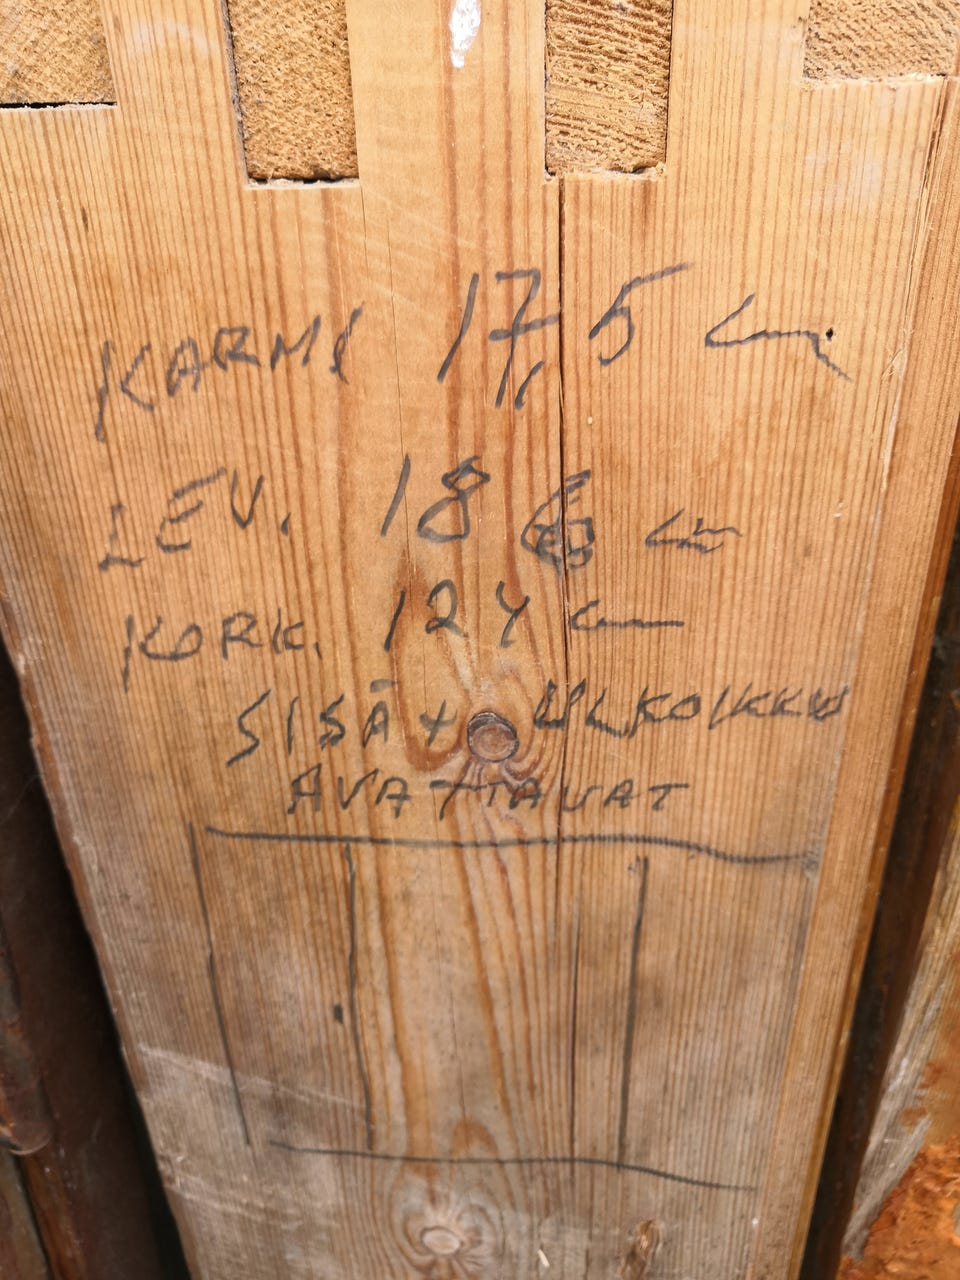 KARMI 17,5 cm
LEV. 18 cm
KORK. 124 cm
SISÄ + ULKOIKKU
AVATTAVAT